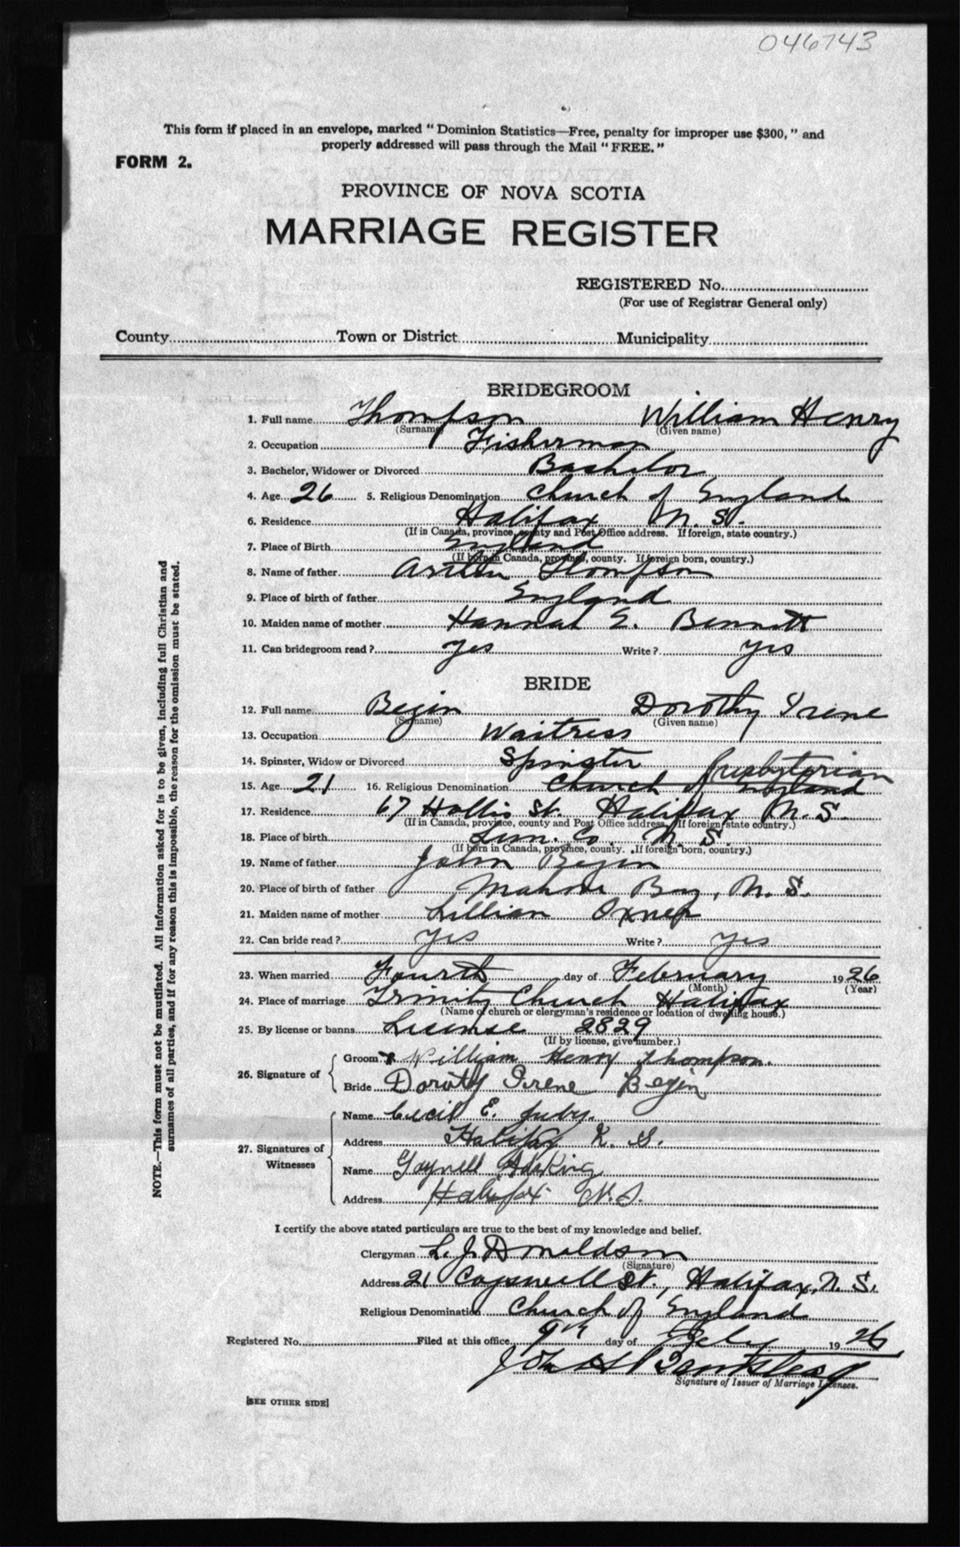 046743
This form if placed in an envelope, marked "Dominion Statistics—Free, penalty for improper use $300," and
properly addressed will pass through the Mail "FREE."
FORM 2.
PROVINCE OF NOVA SCOTIA
MARRIAGE REGISTER
REGISTERED No.
(For use of Registrar General only)
County Town or District Municipality
BRIDEGROOM
1. Full name Thompson William Henry
(Surname) (Given name)
2. Occupation Fisherman
3. Bachelor, Widower or Divorced Bachelor
4. Age 26 5. Religious Denomination Church of England
6. Residence Halifax N. S.
(If in Canada, province, county and Post Office address. If foreign, state country.)
7. Place of Birth England
(If born in Canada, province, county. If foreign born, country.)
8. Name of father Thompson
9. Place of birth of father England
10. Maiden name of mother Hannah E. Bennett
11. Can bridegroom read? yes Write? yes
BRIDE
12. Full name Bezin Dorothy Irene
(Surname) (Given name)
13. Occupation Waitress
14. Spinster, Widow or Divorced Spinster
Presbyterian
15. Age 21 16. Religious Denomination Church of England
17. Residence 67 Hollis St. Halifax N. S.
(If in Canada, province, county and Post Office address. If foreign, state country.)
18. Place of birth Lun. Co. N. S.
(If born in Canada, province, county. If foreign born, country.)
19. Name of father John Bezin
20. Place of birth of father Mahone Bay, N. S.
21. Maiden name of mother Lillian Oxner
22. Can bride read? yes Write? yes
23. When married Fourth day of February 1926
(Month) (Year)
24. Place of marriage Trinity Church Halifax
(Name of church or clergyman's residence or location of dwelling house.)
25. By license or banns License 2829
(If by license, give number.)
26. Signature of
Groom William Henry Thompson.
Bride Dorothy Irene Bezin
27. Signatures of Witnesses
Name Cecil E.
Address Halifax N. S.
Name
Address Halifax N. S.
NOTE.—This form must not be mutilated. All information asked for is to be given, including full Christian and
surnames of all parties, and if for any reason this is impossible, the reason for the omission must be stated.
I certify the above stated particulars are true to the best of my knowledge and belief.
Clergyman L. J. Donaldson
(Signature)
Address 21 Cogswell St., Halifax, N. S.
Religious Denomination Church of England
Registered No. Filed at this office 9th day of 1926
John
Signature of Issuer of Marriage Licenses.
[SEE OTHER SIDE]